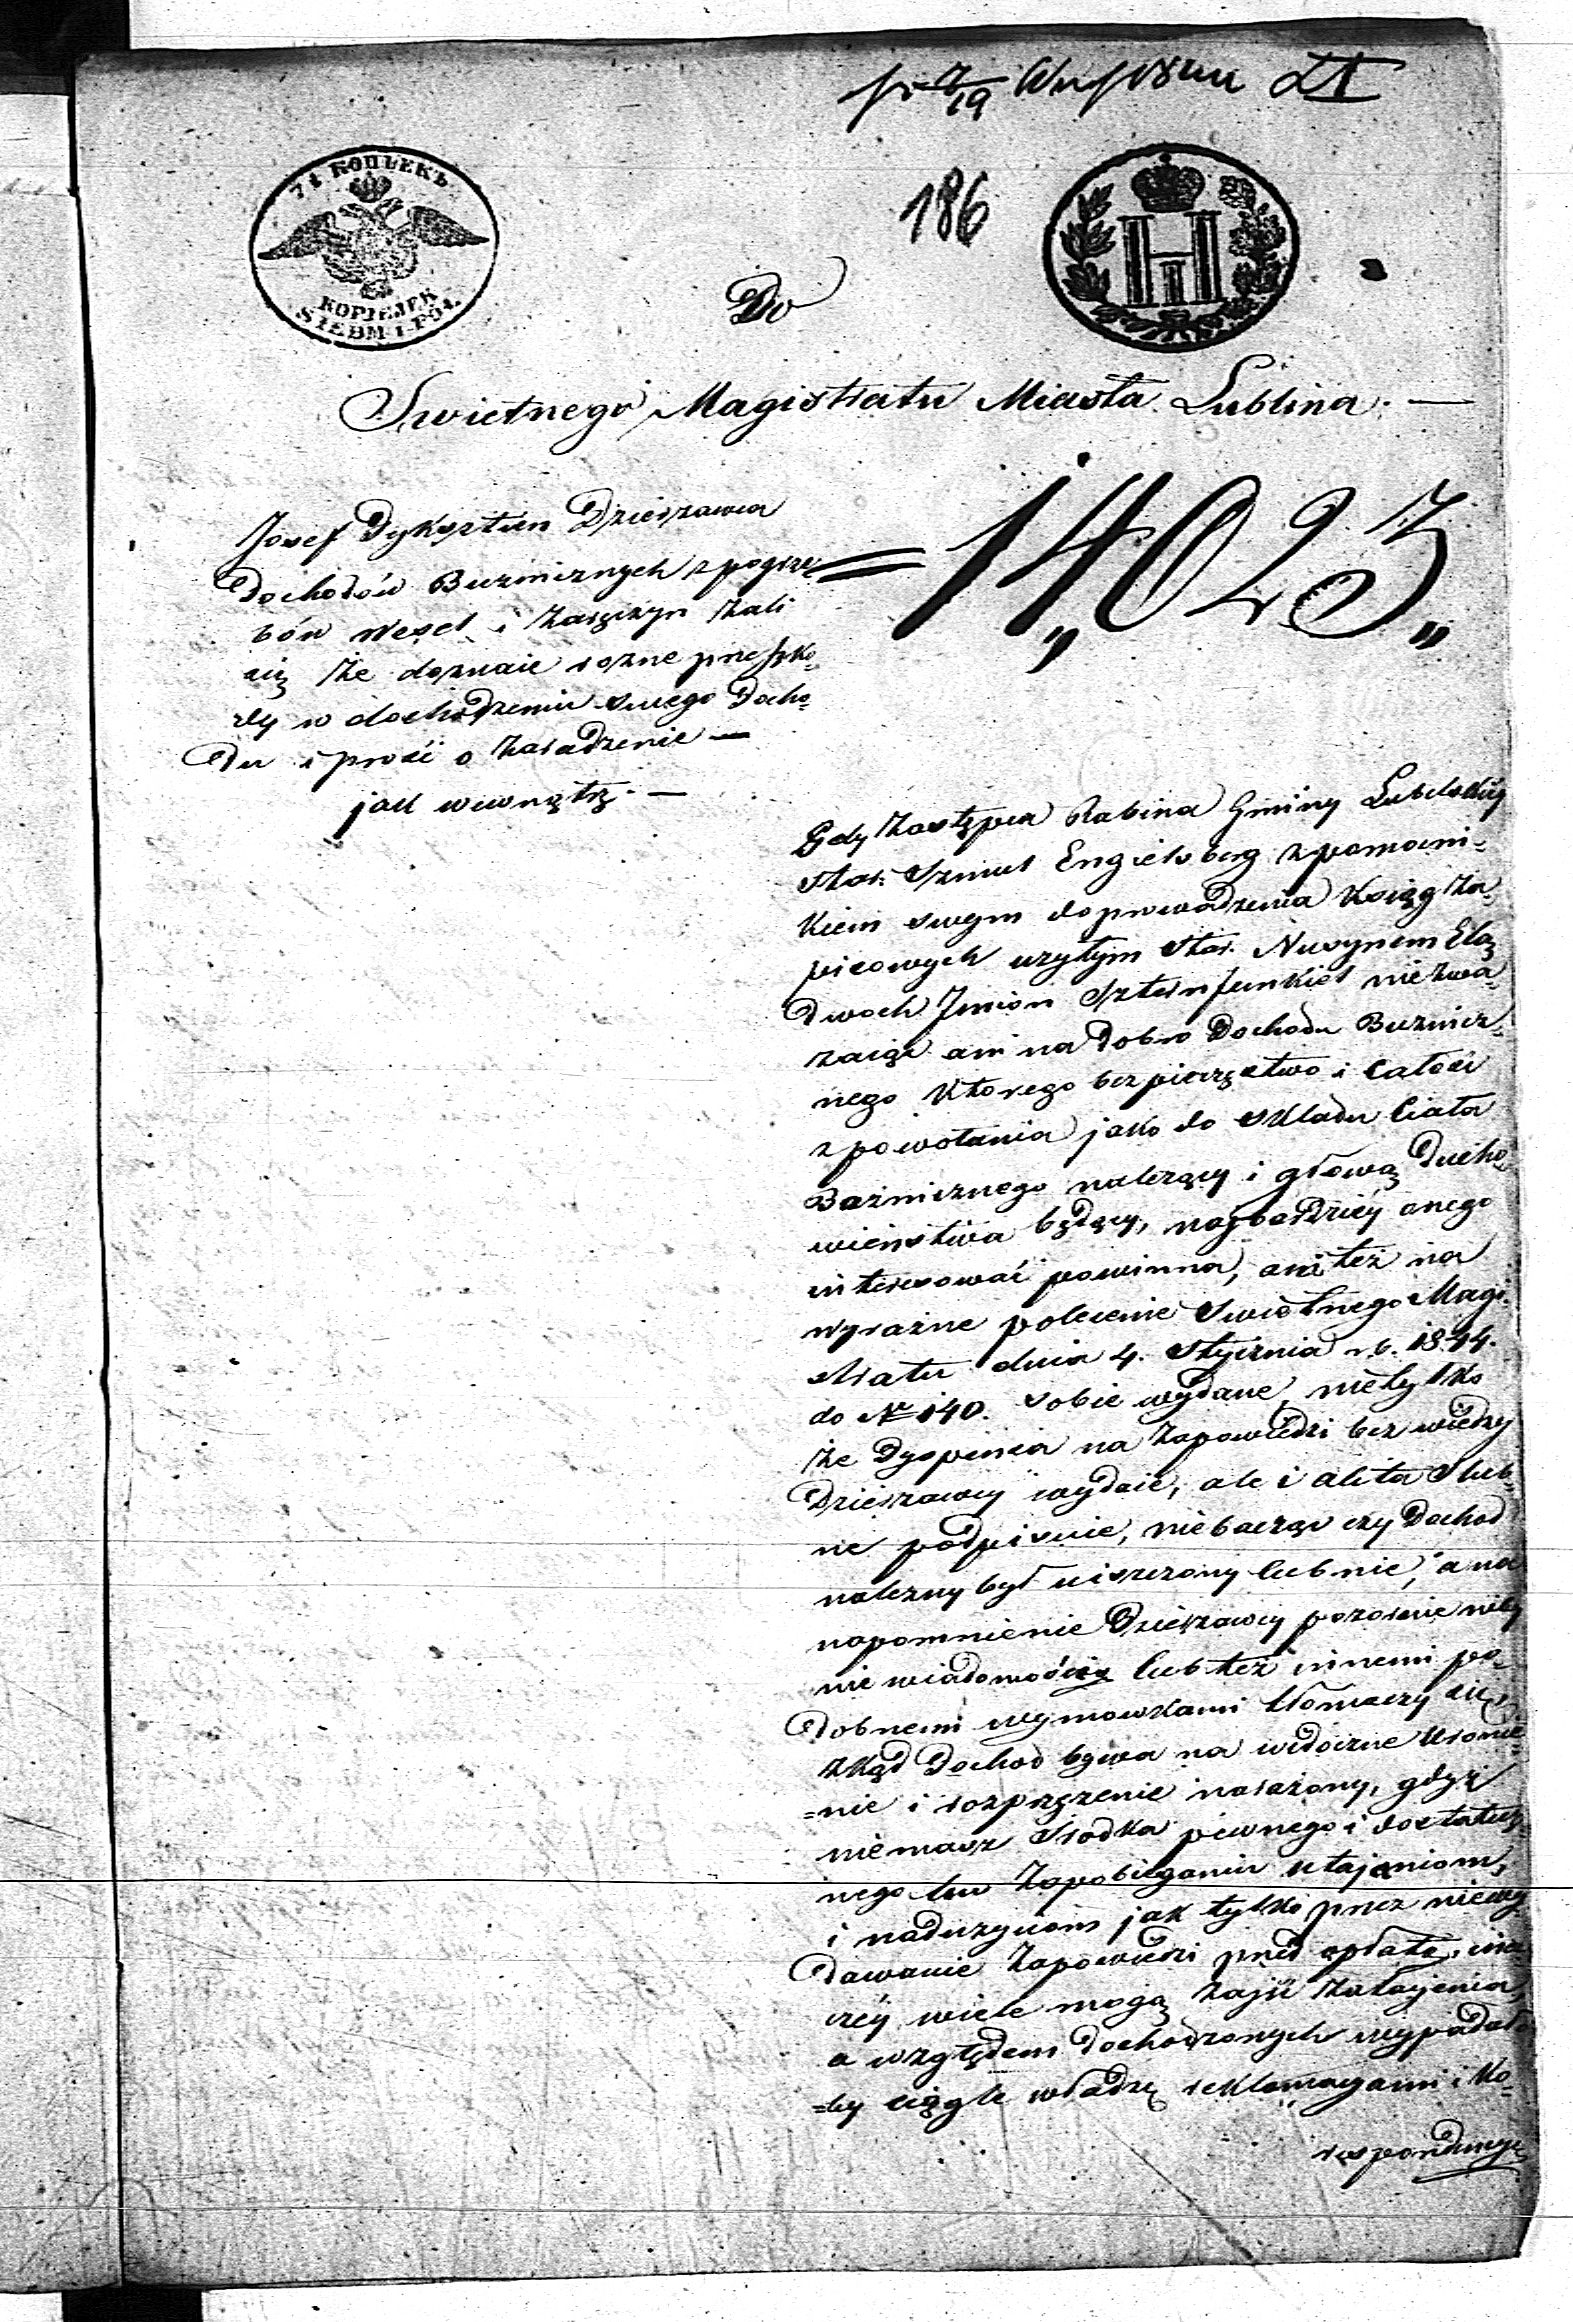 186
7½ КОПѢЕКЪ
KOPIEJEK
SIEDM I PÓŁ.
Do
Swietnego Magistratu Miasta Lublina. —
14,023
Josef Dykersztein Dzierzawca
Dochodów Buzniczych z pogrze=
bów Wesel i Zaręczyn żali
się że doznaie rożne przeszko=
dy w dochodzeniu swego Docho=
du i prosi o zaradzenie —
jak wewnątrz. —
Gdy Zastępca Rabina Gminy Lubelskiey
Star. Szmul Engielsberg z pomocni=
kiem swym do prowadzenia Ksiąg Za=
pisowych użytym Star. Nusynem Elą
dwoch Jmion Szternfinkiel nie zwa=
zaiąc ani na Dobro Dochodu Buznicz=
nego Ktorego bezpieczęstwo i całość
z powołania jako do składu Ciała
Bożniczego nalezący i głową Ducho=
wieństwa będący, naybardziéy onego
interesować powinna, ani też na
wyraźne polecenie Swietnego Magi=
stratu dnia 4. Stycznia r. b. 1844.
do № 140. sobie wydane, nie tylko
że Dyspensa na Zapowiedzi bez wiedzy
Dzierzawcy wydaie, ale i akta Slub=
ne podpisuie, niebacząc czy Dochod
nalezny był uiszczony lub nie, a na
napomnienie Dzierzawcy pozornie niby
niewiadomością lub też innemi po=
dobnemi wymowkami tłomaczy się,
zkąd Dochod bywa na widoczne uroni=
=nie i rozprzęzenie narażony, gdyż
niemasz Srodka pewnego i dostatecz=
nego ku Zapobieganiu utajeniom,
i nadużyciom jak tylko przez niewy=
dawanie Zapowiedzi przed opłatą, ina=
czéy wiele mogą zajść zatajenia,
a względem dochodzonych wypadało=
=by ciągle władzę reklamacyami i Ko=
respondencyą